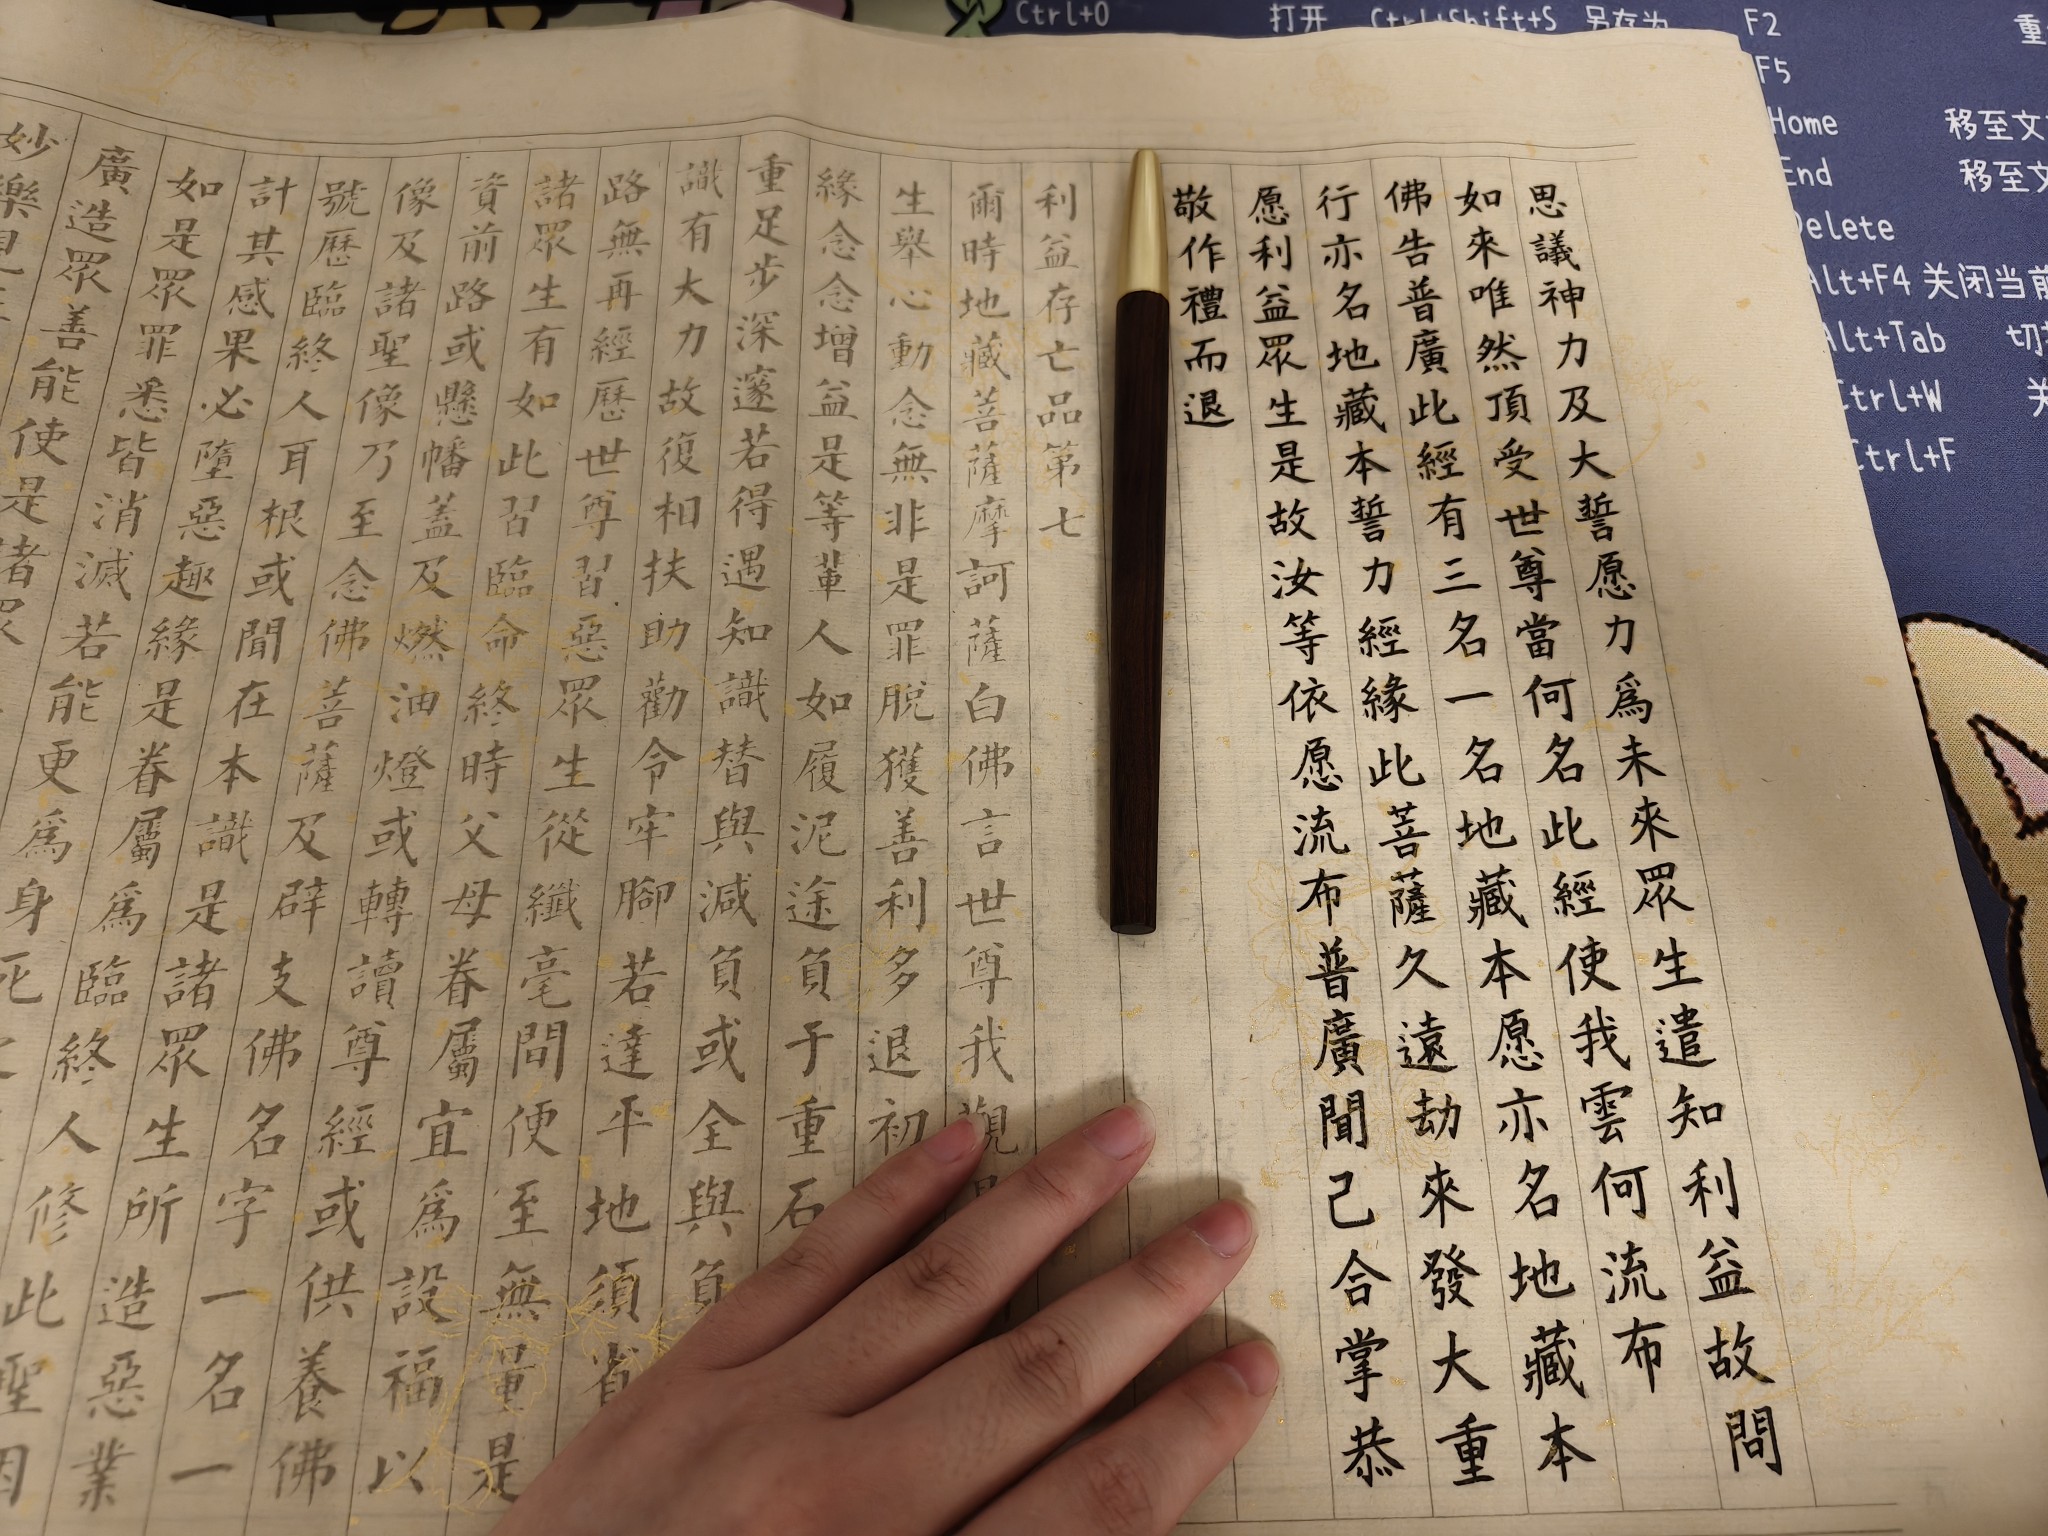 思議神力及大誓愿力爲未來眾生遣知利益故問
如來唯然頂受世尊當何名此經使我雲何流布
佛告普廣此經有三名一名地藏本愿亦名地藏本
行亦名地藏本誓力經緣此菩薩久遠劫來發大重
愿利益眾生是故汝等依愿流布普廣聞己合掌恭
敬作禮而退
利益存亡品第七
爾時地藏菩薩摩訶薩白佛言世尊我觀
生舉心動念無非是罪脫獲善利多退初
緣念念增益是等輩人如履泥途負于重石
重足步深邃若得遇知識替與減負或全與負
識有大力故復相扶助勸令牢腳若達平地須省
路無再經歷世尊習惡眾生從纖毫間便至無量是
諸眾生有如此習臨命終時父母眷屬宜爲設福以
資前路或懸幡蓋及燃油燈或轉讀尊經或供養佛
像及諸聖像乃至念佛菩薩及辟支佛名字一名一
號歷臨終人耳根或聞在本識是諸眾生所造惡業
計其感果必墮惡趣緣是眷屬爲臨終人修此聖因
如是眾罪悉皆消滅若能更爲身死
廣造眾善能使是諸眾
妙樂
Ctrl+O 打开 Ctrl+Shift+S 另存为 F2 重
F5
Home 移至文
End 移至文
Delete
Alt+F4 关闭当前
Alt+Tab 切
Ctrl+W 关
Ctrl+F